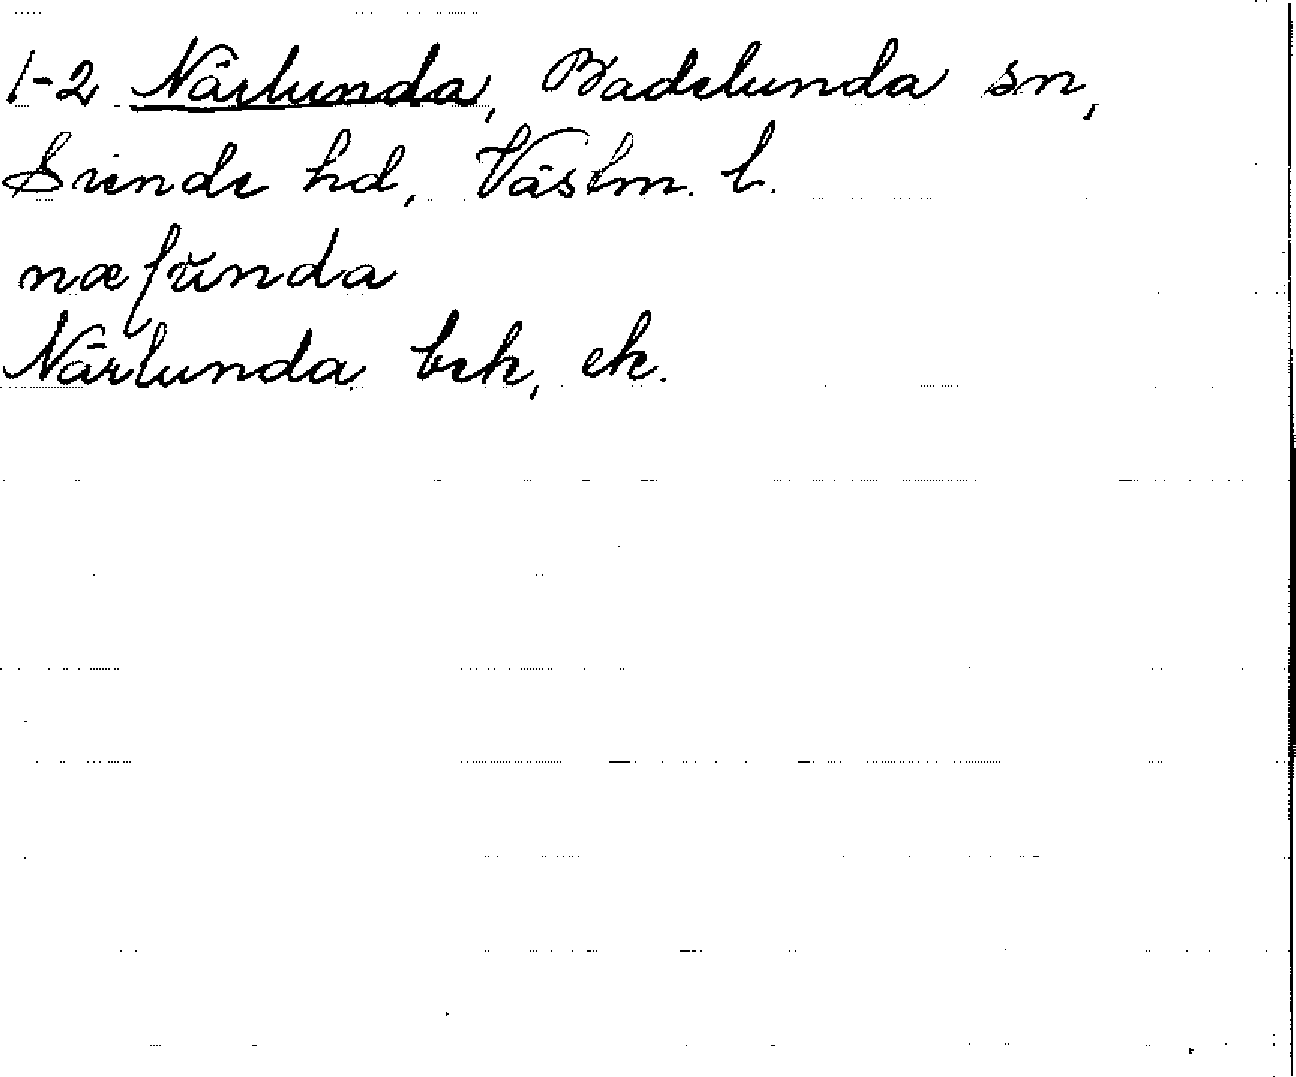 1-2 Närlunda, Badelunda sn,
Siende hd, Västm. l.
næſŭnda
Närlunda bek, ek.